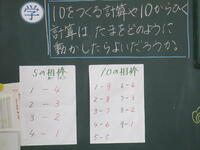 学
10をつくる計算や10からひく
計算は たまをどのように
動かしたらよいだろうか。
5の相棒
1-4
2-3
3-2
4-1
10の相棒
1-9 6-4
2-8 7-3
3-7 8-2
4-6 9-1
5-5